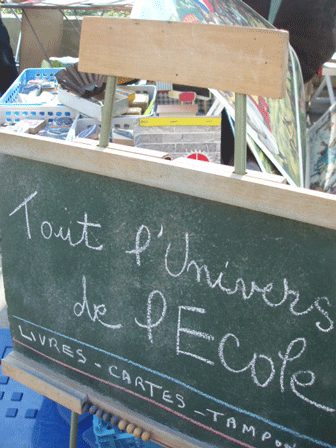 Tout l'Univers
de l'Ecole
LIVRES - CARTES - TAMPON